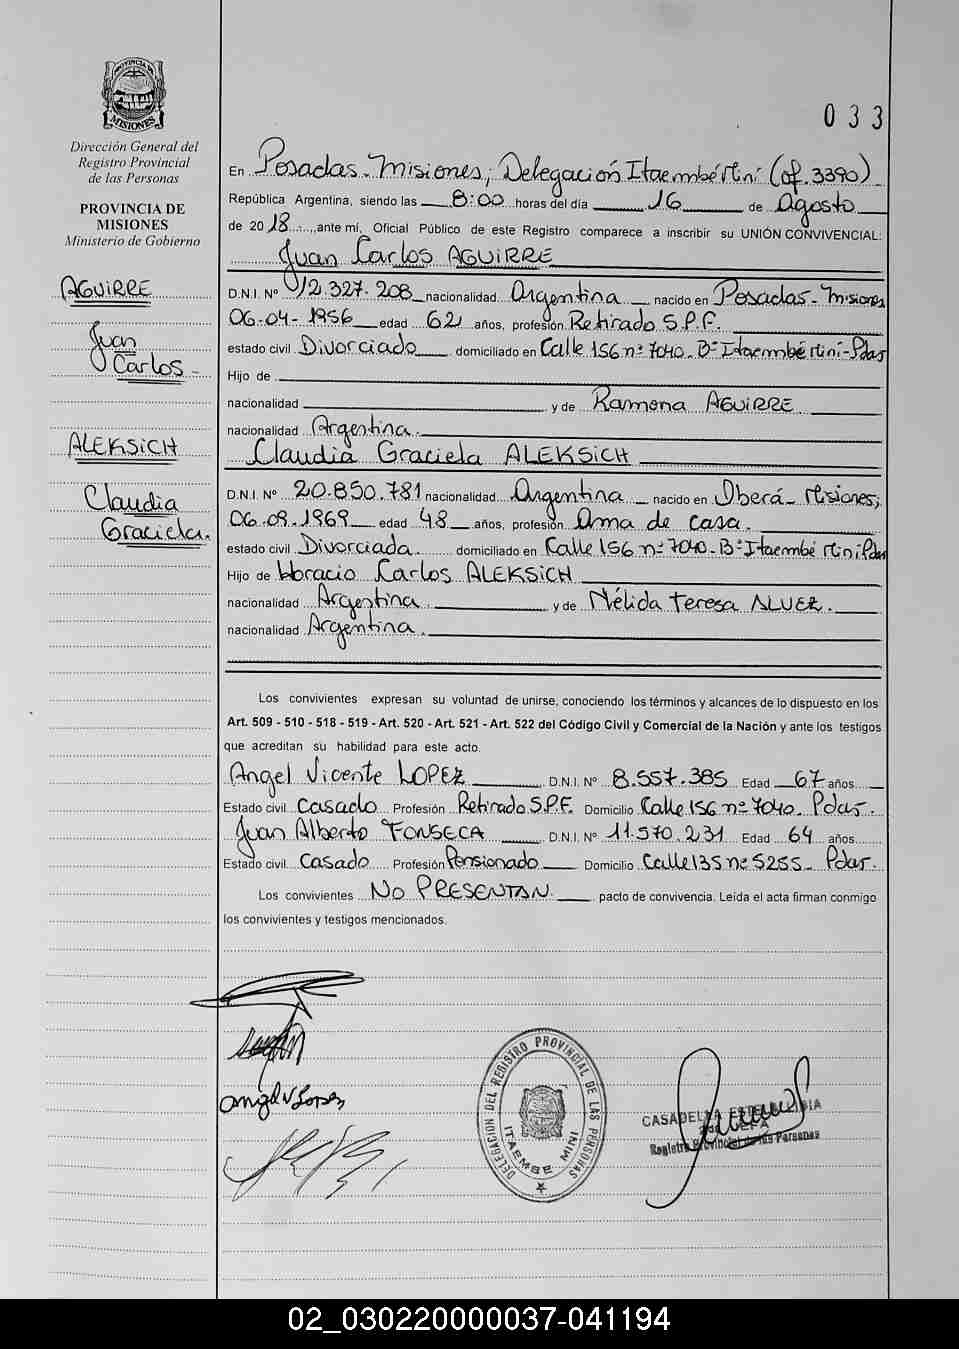 033
PROVINCIA DE
MISIONES
Dirección General del
Registro Provincial
de las Personas
PROVINCIA DE
MISIONES
Ministerio de Gobierno
AGUIRRE
Juan
Carlos -
ALEKSICH
Claudia
Graciela.
En Posadas - Misiones, Delegación Itaembé Mini (of. 3390)
República Argentina, siendo las 8:00 horas del día 16 de Agosto
de 2018, ante mí, Oficial Público de este Registro comparece a inscribir su UNIÓN CONVIVENCIAL:
Juan Carlos AGUIRRE
D.N.I. Nº 12.327.208 nacionalidad Argentina nacido en Posadas - Misiones
06-04-1956 edad 62 años, profesión Retirado S.P.F.
estado civil Divorciado domiciliado en Calle 156 nº 7040. Bº Itaembé Mini - Pdas
Hijo de
nacionalidad y de Ramona AGUIRRE
nacionalidad Argentina.
Claudia Graciela ALEKSICH
D.N.I. Nº 20.850.781 nacionalidad Argentina nacido en Oberá - Misiones,
06.09.1969 edad 48 años, profesión Ama de casa.
estado civil Divorciada domiciliado en Calle 156 nº 7040 - Bº Itaembé Mini Pdas
Hijo de Horacio Carlos ALEKSICH
nacionalidad Argentina. y de Nélida Teresa ALVEZ.
nacionalidad Argentina.
Los convivientes expresan su voluntad de unirse, conociendo los términos y alcances de lo dispuesto en los
Art. 509 - 510 - 518 - 519 - Art. 520 - Art. 521 - Art. 522 del Código Civil y Comercial de la Nación y ante los testigos
que acreditan su habilidad para este acto.
Angel Vicente LOPEZ D.N.I. Nº 8.557.385 Edad 67 años
Estado civil Casado Profesión Retirado S.P.F. Domicilio Calle 156 nº 7040. Pdas.
Juan Alberto FONSECA D.N.I. Nº 11.570.231 Edad 64 años.
Estado civil Casado Profesión Pensionado Domicilio Calle 135 nº 5255 - Pdas.
Los convivientes NO PRESENTAN pacto de convivencia. Leída el acta firman conmigo
los convivientes y testigos mencionados.
Angel V Lopez
DELEGACION DEL REGISTRO PROVINCIAL DE LAS PERSONAS
ITAEMBE MINI
CASADELLA ESTELA
JEFA
Registro Provincial de las Personas
02_030220000037-041194